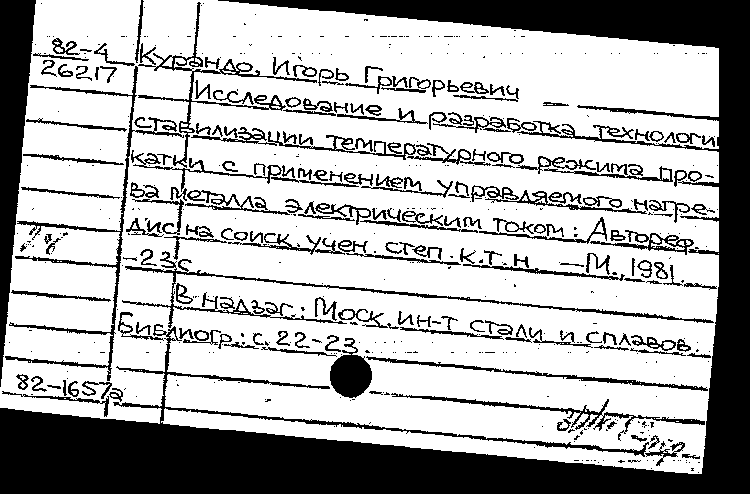 82-4
26217
Курандо, Игорь Григорьевич
Исследование и разработка технологии
стабилизации температурного режима про-
катки с применением управляемого нагре-
ва металла электрическим током: Автореф.
дис на соиск. учен. степ. к.т.н. – М., 1981.
-23с.
В надзаг: Моск. ин-т стали и сплавов.
Библиогр.: с. 22-23.
82-1657а